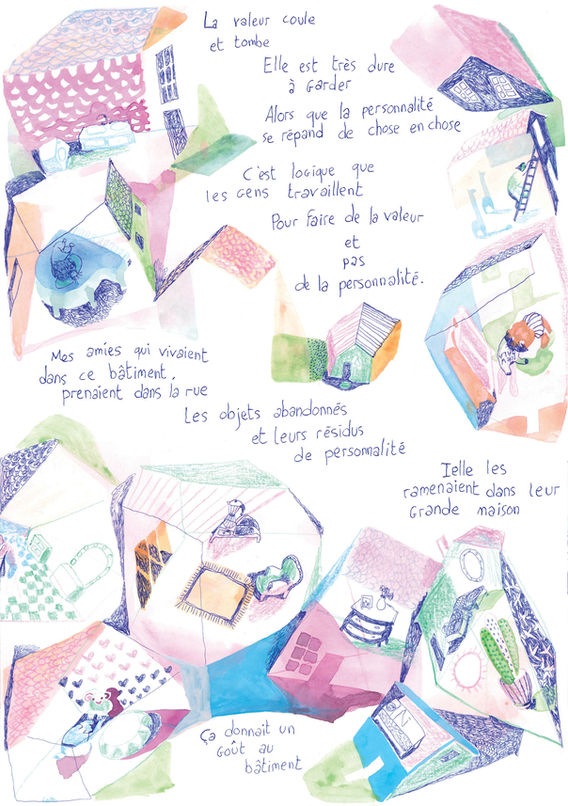 La valeur coule
et tombe
Elle est très dure
à garder
Alors que la personnalité
se répand de chose en chose
C'est logique que
les gens travaillent
Pour faire de la valeur
et
pas
de la personnalité.
Mes amies qui vivaient
dans ce bâtiment,
prenaient dans la rue
Les objets abandonnés
et leurs résidus
de personnalité
Ielle les
ramenaient dans leur
grande maison
Ça donnait un
goût au
bâtiment